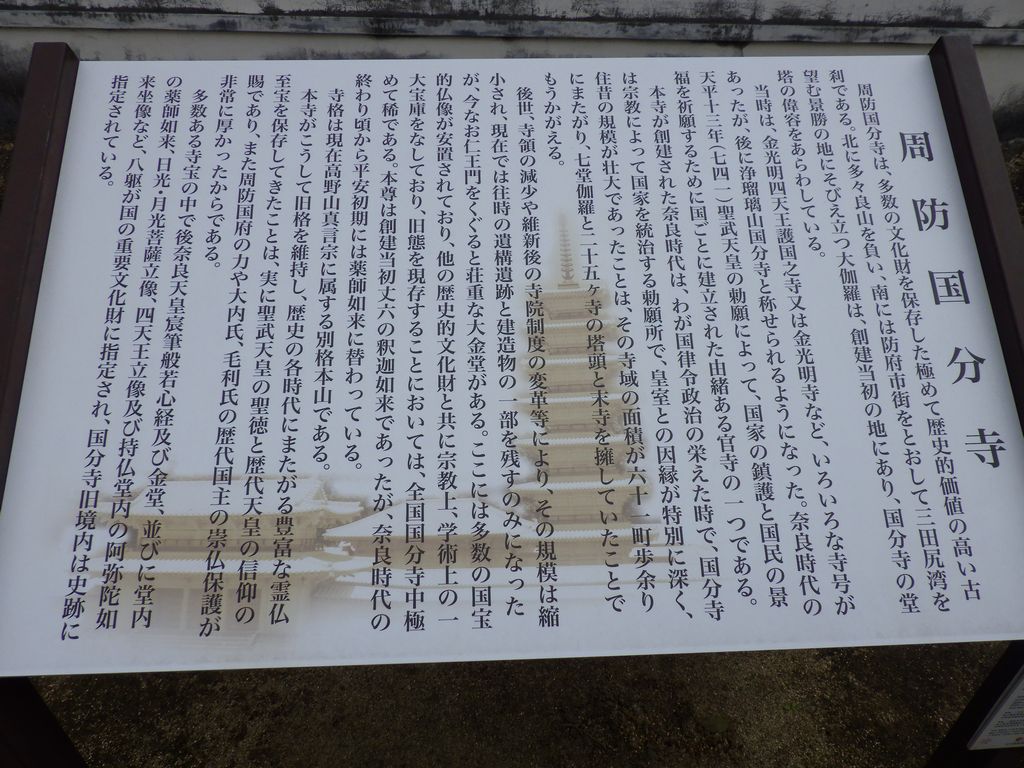 周防国分寺
周防国分寺は、多数の文化財を保存した極めて歴史的価値の高い古
刹である。北に多々良山を負い、南には防府市街をとおして三田尻湾を
望む景勝の地にそびえ立つ大伽羅は、創建当初の地にあり、国分寺の堂
塔の偉容をあらわしている。
当時は、金光明四天王護国之寺又は金光明寺など、いろいろな寺号が
あったが、後に浄瑠璃山国分寺と称せられるようになった。奈良時代の
天平十三年（七四一）聖武天皇の勅願によって、国家の鎮護と国民の景
福を祈願するために国ごとに建立された由緒ある官寺の一つである。
本寺が創建された奈良時代は、わが国律令政治の栄えた時で、国分寺
は宗教によって国家を統治する勅願所で、皇室との因縁が特別に深く、
往昔の規模が壮大であったことは、その寺域の面積が六十一町歩余り
にまたがり、七堂伽羅と二十五ヶ寺の塔頭と末寺を擁していたことで
もうかがえる。
後世、寺領の減少や維新後の寺院制度の変革等により、その規模は縮
小され、現在では往時の遺構遺跡と建造物の一部を残すのみになった
が、今なお仁王門をくぐると荘重な大金堂がある。ここには多数の国宝
的仏像が安置されており、他の歴史的文化財と共に宗教上、学術上の一
大宝庫をなしており、旧態を現存することにおいては、全国国分寺中極
めて稀である。本尊は創建当初丈六の釈迦如来であったが、奈良時代の
終わり頃から平安初期には薬師如来に替わっている。
寺格は現在高野山真言宗に属する別格本山である。
本寺がこうして旧格を維持し、歴史の各時代にまたがる豊富な霊仏
至宝を保存してきたことは、実に聖武天皇の聖徳と歴代天皇の信仰の
賜であり、また周防国府の力や大内氏、毛利氏の歴代国主の崇仏保護が
非常に厚かったからである。
多数ある寺宝の中で後奈良天皇宸筆般若心経及び金堂、並びに堂内
の薬師如来、日光・月光菩薩立像、四天王立像及び持仏堂内の阿弥陀如
来坐像など、八躯が国の重要文化財に指定され、国分寺旧境内は史跡に
指定されている。